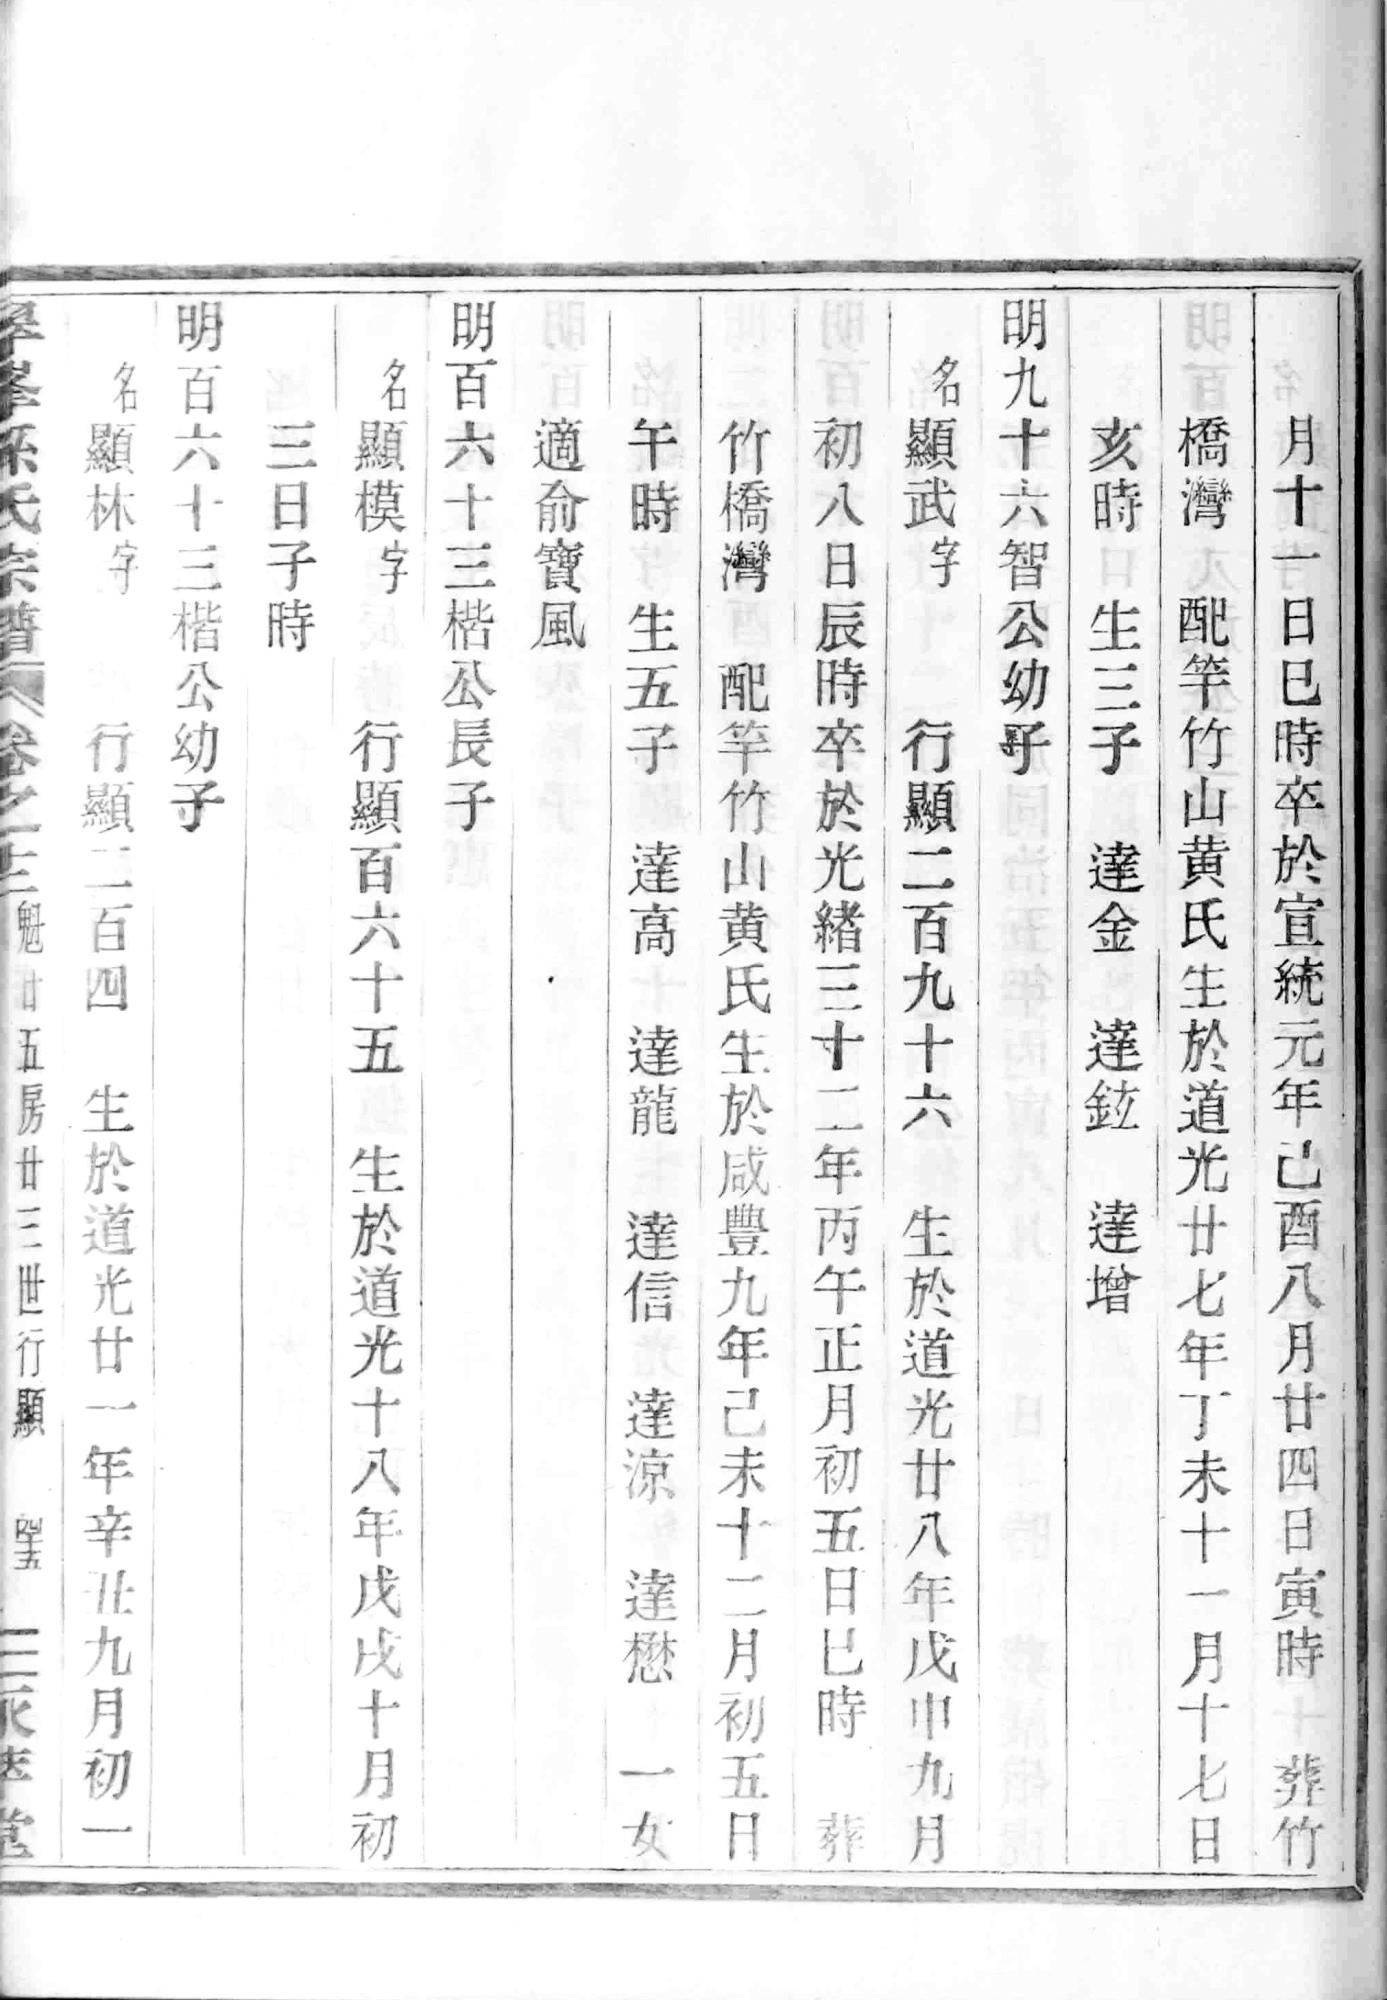 月十一日巳時卒於宣統元年己酉八月廿四日寅時 葬竹
橋灣 配竿竹山黄氏生於道光廿七年丁未十一月十七日
亥時 生三子 達金 達鉉 達增
明九十六智公幼子
名顯武字 行顯二百九十六 生於道光廿八年戊申九月
初八日辰時卒於光緒三十二年丙午正月初五日巳時 葬
竹橋灣 配竿竹山黄氏生於咸豐九年己未十二月初五日
午時 生五子 達高 達龍 達信 達涼 達懋 一女
適俞寶風
明百六十三楷公長子
名顯模字 行顯百六十五 生於道光十八年戊戌十月初
三日子時
明百六十三楷公幼子
名顯林字 行顯二百四 生於道光廿一年辛丑九月初一
孫氏宗譜 卷之十三 魁廿五房廿三世行顯